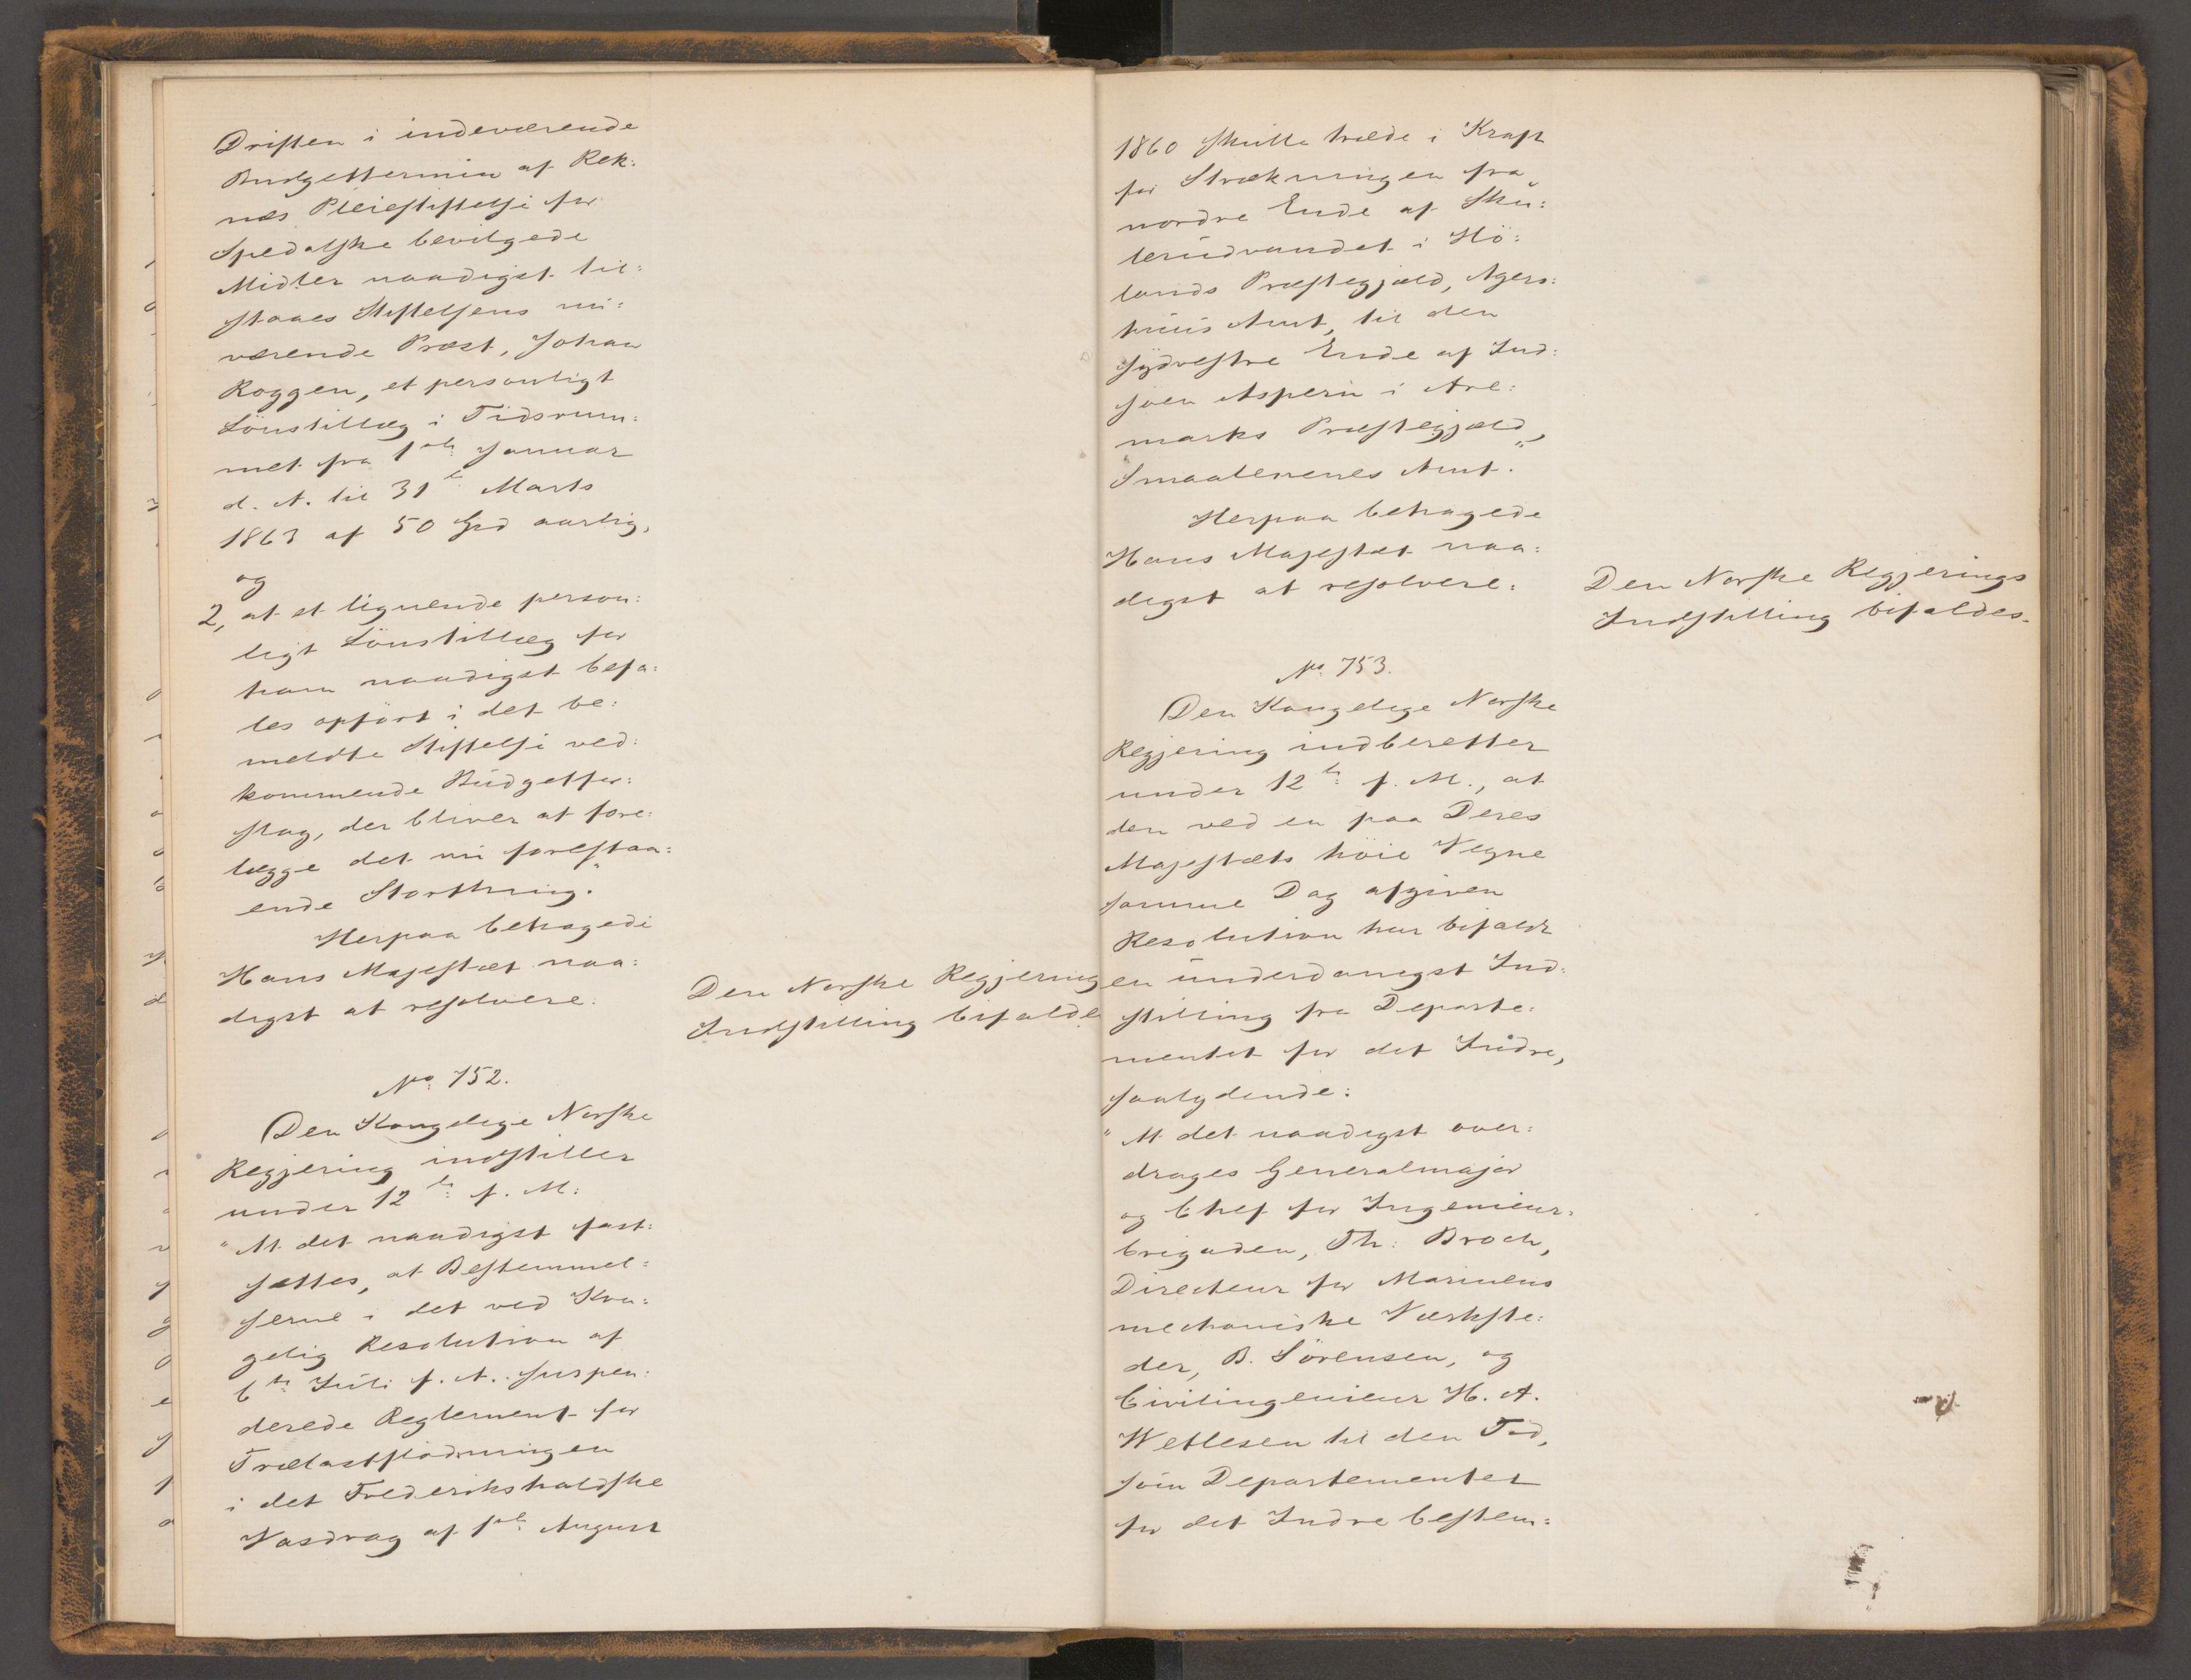 Driften i indeværende
Budgettermin af Rek:
næs Pleiestiftelse for
Spedalske bevilgede
Midler naadigst til:
staaes Stiftelsens nu:
værende Præst, Johan
Koggen, et personligt
Lönstillæg i Tidsrum:
met fra 1ste Januar
d. A. til 31te Marts
1863 af 50 Spd aarlig,
og
2, at et lignende person:
ligt Lönstillæg for
ham naadigst befa:
les opfört i det be:
meldte Stiftelse ved:
kommende Budgetfor:
slag, der bliver at fore:
lægge det nu forestaa:
ende Storthing."
Herpaa behagede
Hans Majestæt naa:
digst at resolvere:
Den Norske Regjering
Indstilling bifaldes
No 752.
Den Kongelige Norske
Regjering indstiller
under 12te f. M:
"At det naadigst fast:
sættes, at Bestemmel:
serne i det ved Kon:
gelig Resolution af
6te Juli f. A. suspen:
derede Reglement for
Trælastflödningen
i det Frederikshaldske
Vasdrag af 1ste August
1860 skulle træde i Kraft
for Strækningen fra
nordre Ende af Sku:
lerudvandet i Hö:
lands Præstegjæld, Agers:
huus Amt, til den
sydvestre Ende af Ind:
söen Aspern i Are:
marks Præstegjæld,
Smaalenenes Amt."
Herpaa behagede
Hans Majestæt naa:
digst at resolvere:
Den Norske Regjerings
Indstilling bifaldes.
No 753.
Den Kongelige Norske
Regjering indberetter
under 12te f. M., at
den ved en paa Deres
Majestæts höie Vegne
samme Dag afgiven
Resolution har bifaldt
en underdanigst Ind:
stilling fra Departe:
mentet for det Indre,
saalydende:
"At det naadigst over:
drages Generalmajor
og Chef for Ingenieur:
brigaden, Th: Broch,
Directeur for Marinens
mechaniske Værkste:
der, B. Sörensen, og
Civilingenieur H. A.
Wetlesen til den Tid,
som Departementet
for det Indre bestem: